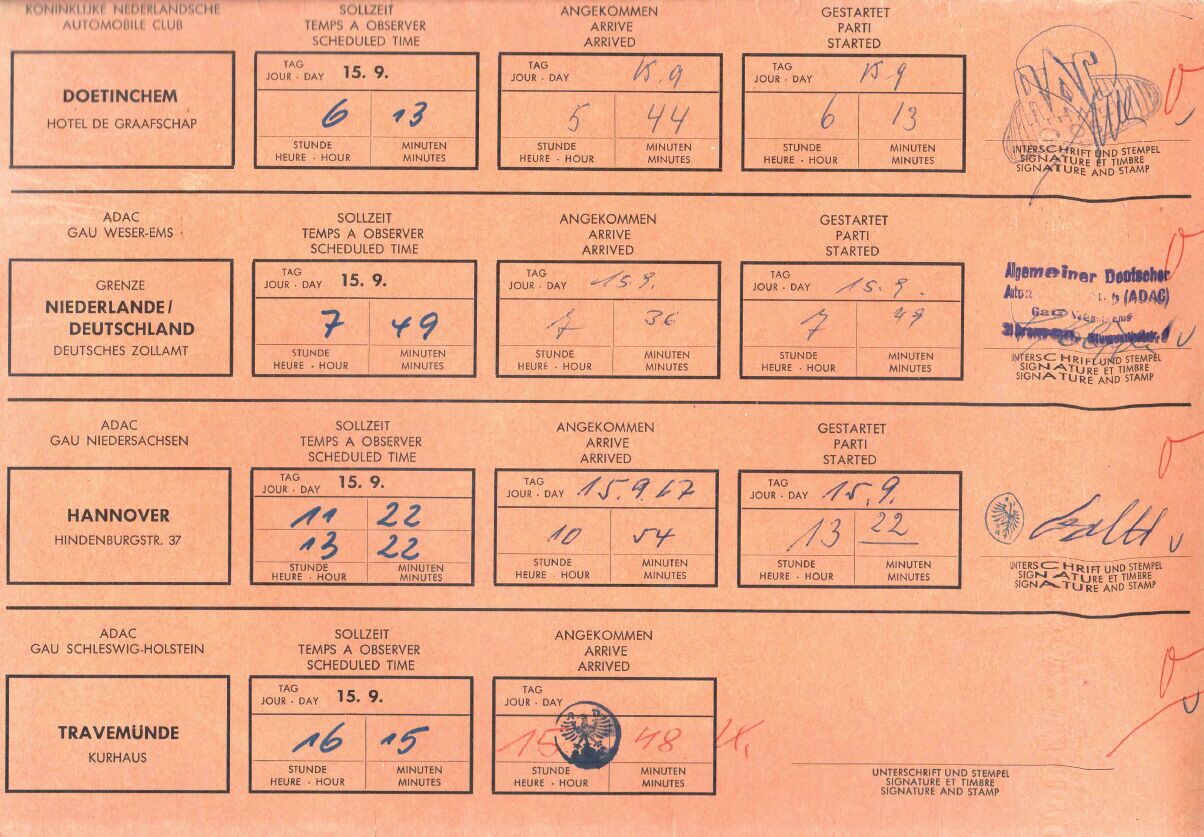 KONINKLIJKE NEDERLANDSCHE
AUTOMOBILE CLUB
DOETINCHEM
HOTEL DE GRAAFSCHAP
SOLLZEIT
TEMPS A OBSERVER
SCHEDULED TIME
TAG
JOUR · DAY 15. 9.
6 13
STUNDE MINUTEN
HEURE · HOUR MINUTES
ANGEKOMMEN
ARRIVE
ARRIVED
TAG
JOUR · DAY 15.9
5 44
STUNDE MINUTEN
HEURE · HOUR MINUTES
GESTARTET
PARTI
STARTED
TAG
JOUR · DAY 15.9
6 13
STUNDE MINUTEN
HEURE · HOUR MINUTES
UNTERSCHRIFT UND STEMPEL
SIGNATURE ET TIMBRE
SIGNATURE AND STAMP
ADAC
GAU WESER-EMS
GRENZE
NIEDERLANDE/
DEUTSCHLAND
DEUTSCHES ZOLLAMT
SOLLZEIT
TEMPS A OBSERVER
SCHEDULED TIME
TAG
JOUR · DAY 15. 9.
7 49
STUNDE MINUTEN
HEURE · HOUR MINUTES
ANGEKOMMEN
ARRIVE
ARRIVED
TAG
JOUR · DAY 15.9.
7 36
STUNDE MINUTEN
HEURE · HOUR MINUTES
GESTARTET
PARTI
STARTED
TAG
JOUR · DAY 15.9.
7 49
STUNDE MINUTEN
HEURE · HOUR MINUTES
Allgemeiner Deutscher
(ADAC)
Gau Weser-Ems
UNTERSCHRIFT UND STEMPEL
SIGNATURE ET TIMBRE
SIGNATURE AND STAMP
ADAC
GAU NIEDERSACHSEN
HANNOVER
HINDENBURGSTR. 37
SOLLZEIT
TEMPS A OBSERVER
SCHEDULED TIME
TAG
JOUR · DAY 15. 9.
11 22
13 22
STUNDE MINUTEN
HEURE · HOUR MINUTES
ANGEKOMMEN
ARRIVE
ARRIVED
TAG
JOUR · DAY 15.9.67
10 54
STUNDE MINUTEN
HEURE · HOUR MINUTES
GESTARTET
PARTI
STARTED
TAG
JOUR · DAY 15.9.
13 22
STUNDE MINUTEN
HEURE · HOUR MINUTES
UNTERSCHRIFT UND STEMPEL
SIGNATURE ET TIMBRE
SIGNATURE AND STAMP
ADAC
GAU SCHLESWIG-HOLSTEIN
TRAVEMÜNDE
KURHAUS
SOLLZEIT
TEMPS A OBSERVER
SCHEDULED TIME
TAG
JOUR · DAY 15. 9.
16 15
STUNDE MINUTEN
HEURE · HOUR MINUTES
ANGEKOMMEN
ARRIVE
ARRIVED
TAG
JOUR · DAY
15 48
STUNDE MINUTEN
HEURE · HOUR MINUTES
UNTERSCHRIFT UND STEMPEL
SIGNATURE ET TIMBRE
SIGNATURE AND STAMP